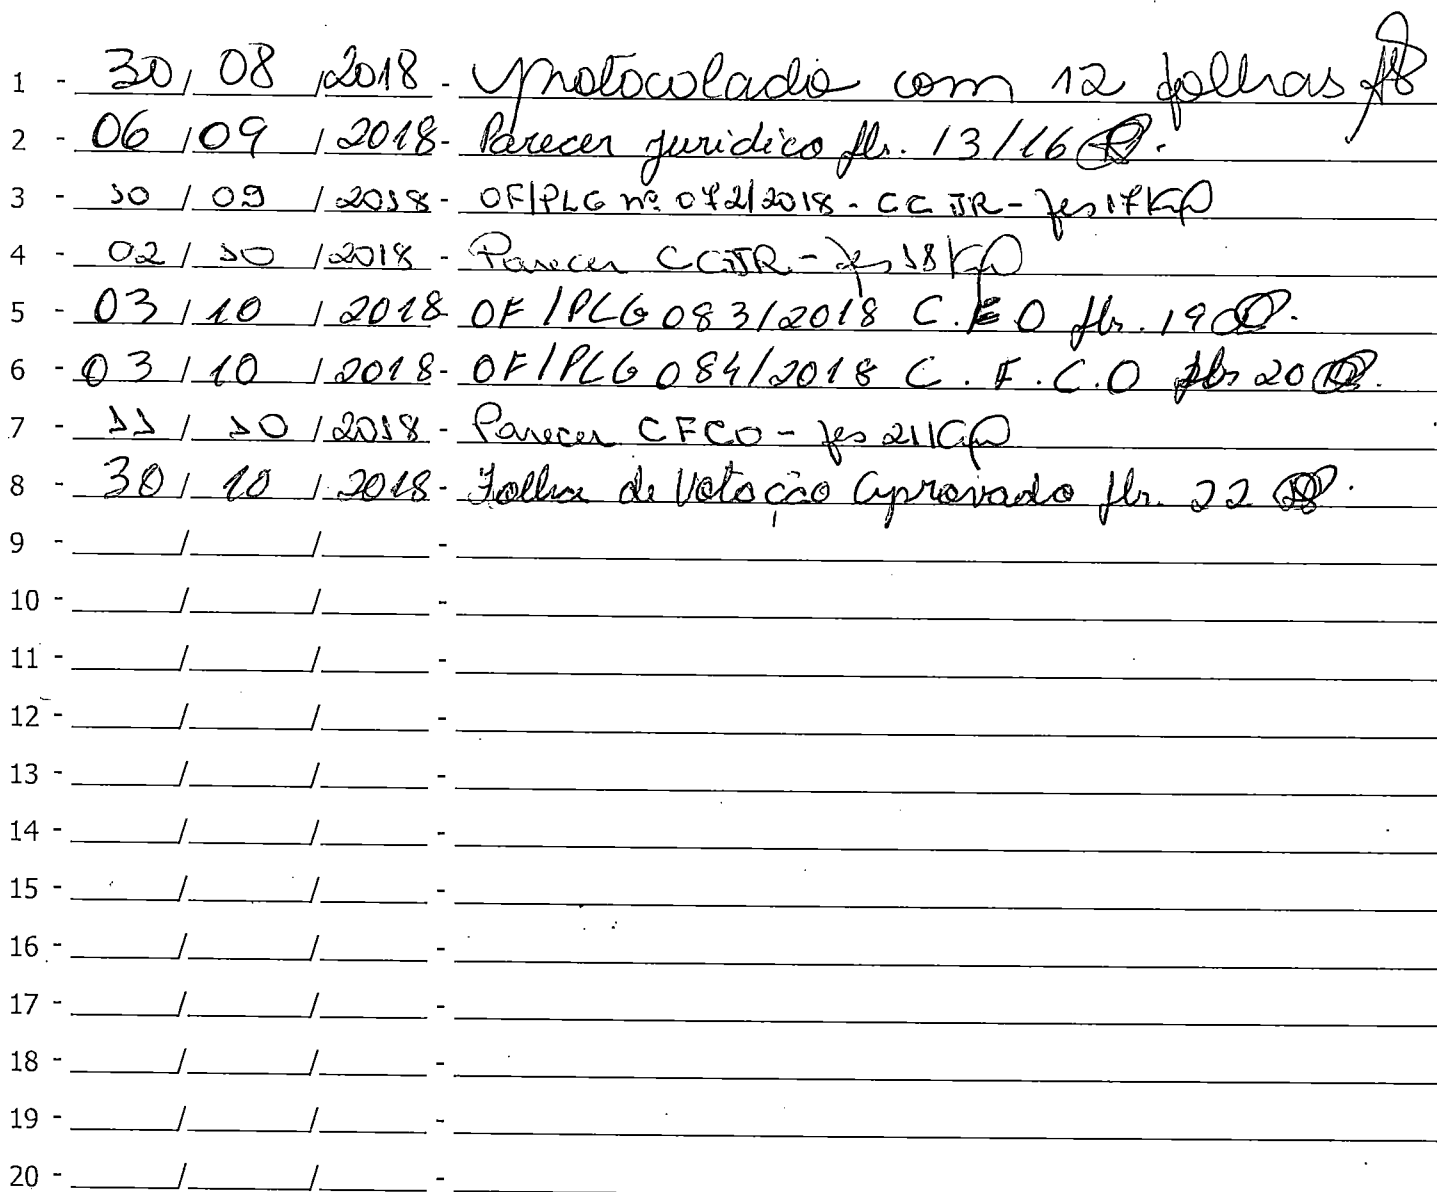 1 - 30 / 08 / 2018 - Protocolado com 12 folhas
2 - 06 / 09 / 2018 - Parecer jurídico fls. 13/16
3 - 10 / 09 / 2018 - OF/PLG nº 072/2018 - CCJR - fls 17
4 - 02 / 10 / 2018 - Parecer CCJR - fls 18
5 - 03 / 10 / 2018 - OF/PLG 083/2018 C.E O fls. 19
6 - 03 / 10 / 2018 - OF/PLG 084/2018 C.F.C.O fls 20
7 - 11 / 10 / 2018 - Parecer CFCO - fls 21
8 - 30 / 10 / 2018 - Folha de Votação Aprovado fls. 22
9 - ____/____/____ -
10 - ____/____/____ -
11 - ____/____/____ -
12 - ____/____/____ -
13 - ____/____/____ -
14 - ____/____/____ -
15 - ____/____/____ -
16 - ____/____/____ -
17 - ____/____/____ -
18 - ____/____/____ -
19 - ____/____/____ -
20 - ____/____/____ -